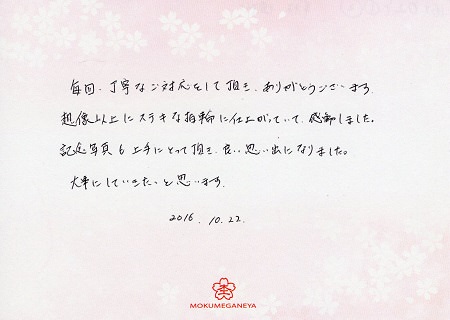 毎回、丁寧なご対応をして頂き、ありがとうございます。
想像以上にステキな指輪に仕上がっていて、感動しました。
記念写真も上手にとって頂き、良い思い出になりました。
大事にしていきたいと思います。
2016.10.22.
MOKUMEGANEYA